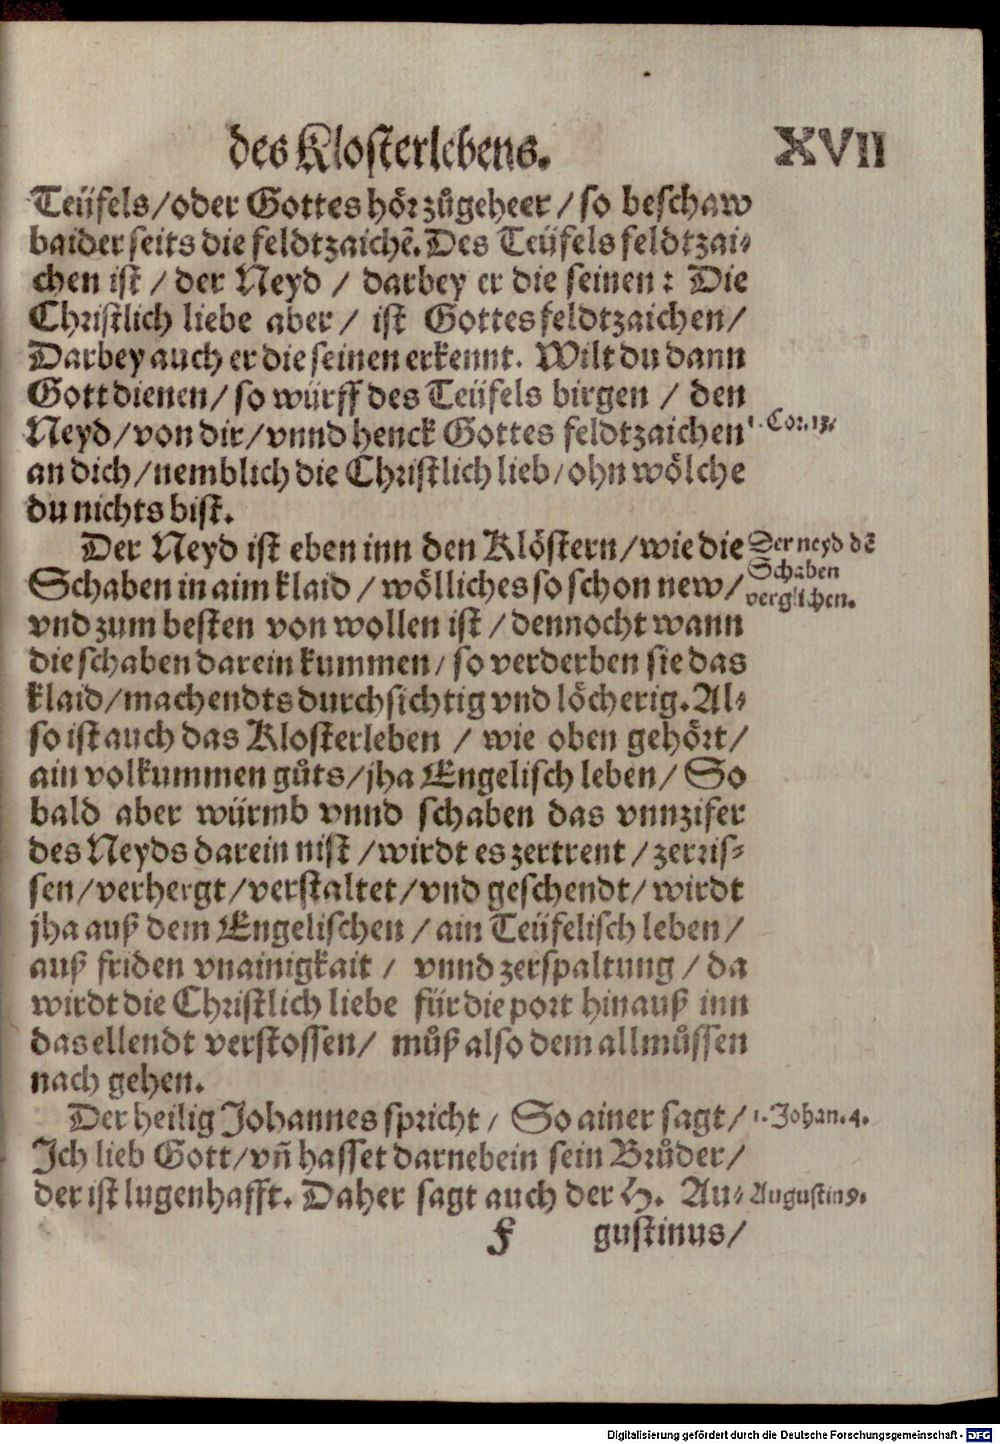 des Klosterlebens. XVII
Teüfels/oder Gottes hör zůgeheer/ so beschaw
baiderseits die feldtzaichẽ. Des Teüfels feldtzai⸗
chen ist / der Neyd / darbey er die seinen: Die
Christlich liebe aber/ ist Gottes feldtzaichen/
Darbey auch er die seinen erkennt. Wilt du dann
Gott dienen/ so würff des Teüfels birgen / den
Neyd/von dir/vnnd henck Gottes feldtzaichen
1. Cor. 13.
an dich/nemblich die Christlich lieb/ohn wölche
du nichts bist.
Der Neyd ist eben inn den Klöstern/wie die
Der neyd dẽ
Schaben
verglichen.
Schaben in aim klaid / wölliches so schon new/
vnd zum besten von wollen ist / dennocht wann
die schaben darein kummen/ so verderben sie das
klaid/machendts durchsichtig vnd löcherig. Al⸗
so ist auch das Klosterleben / wie oben gehört/
ain volkummen gůts/jha Engelisch leben/ So
bald aber würmb vnnd schaben das vnnzifer
des Neyds darein nist /wirdt es zertrent/ zerris⸗
sen/verhergt/verstaltet/vnd geschendt/ wirdt
jha auß dem Engelischen / ain Teüfelisch leben/
auß friden vnainigkait / vnnd zerspaltung / da
wirdt die Christlich liebe für die port hinauß inn
das ellendt verstossen/ můß also dem allmůssen
nach gehen.
Der heilig Johannes spricht/ So ainer sagt/
1. Johan. 4.
Ich lieb Gott/vñ hasset darnebein sein Brůder/
der ist lugenhafft. Daher sagt auch der H. Au⸗
Augustin9.
F gustinus/
Digitalisierung gefördert durch die Deutsche Forschungsgemeinschaft - DFG